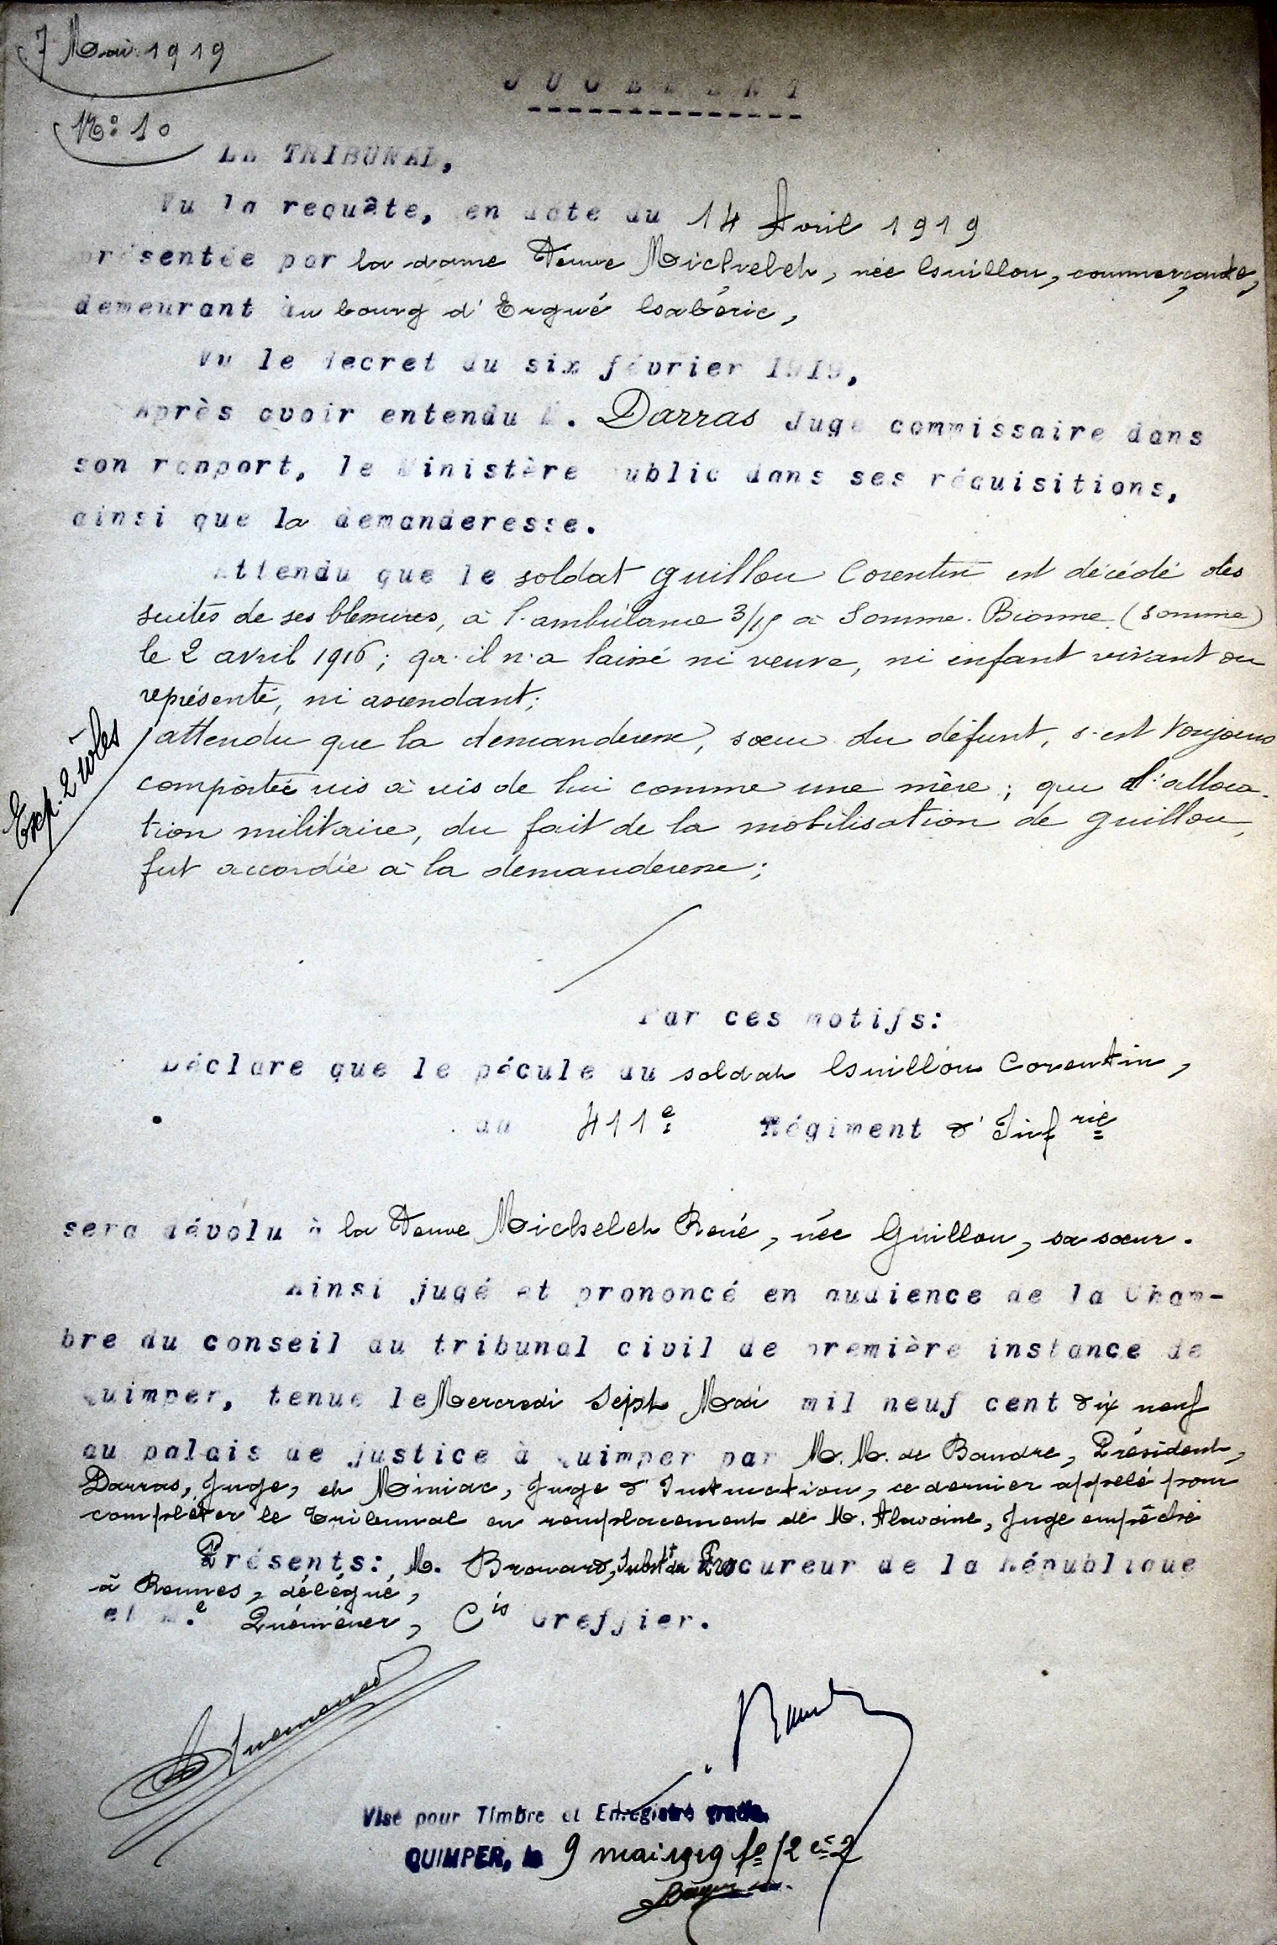 7 Mai 1919
JUGEMENT
No: 10
LE TRIBUNAL,
Vu la requête, en date du 14 Avril 1919
présentée par la dame Veuve Michelet, née Guillou, commerçante,
demeurant au bourg d'Ergué Gabéric,
Vu le decret du six février 1919,
Après avoir entendu M. Darras Juge commissaire dans
son rapport, le Ministère public dans ses réquisitions,
ainsi que la demanderesse.
Attendu que le soldat Guillou Corentin est décédé des
suites de ses blessures, à l'ambulance 3/15 à Somme-Bionne (Somme)
le 2 avril 1916; qu'il n'a laissé ni veuve, ni enfant vivant ou
représenté, ni ascendant;
attendu que la demanderesse, sœur du défunt, s'est toujours
comportée vis à vis de lui comme une mère; que l'alloca-
tion militaire, du fait de la mobilisation de Guillou,
fut accordée à la demanderesse;
Exp. 2 rôles
Par ces motifs:
Déclare que le pécule du soldat Guillou Corentin,
du 411e Régiment d'Infrie
sera dévolu à la Veuve Michelet René, née Guillou, sa sœur.
Ainsi jugé et prononcé en audience de la Cham-
bre du conseil du tribunal civil de première instance de
Quimper, tenue le Mercredi Sept Mai mil neuf cent dix neuf
au palais de justice à Quimper par M.M. de Baudre, Président,
Darras, Juge, et Miniac, Juge d'Instruction, ce dernier appelé pour
compléter le Tribunal en remplacement de M. Alavoine, Juge empêché
Présents: M. Brouard, Subst. du Procureur de la République
à Rennes, délégué,
et Me Quéméner, Cis Greffier.
Quemener
Baudre
Visé pour Timbre et Enregistré gratis.
QUIMPER, le 9 mai 1919 fo 12 ce 2